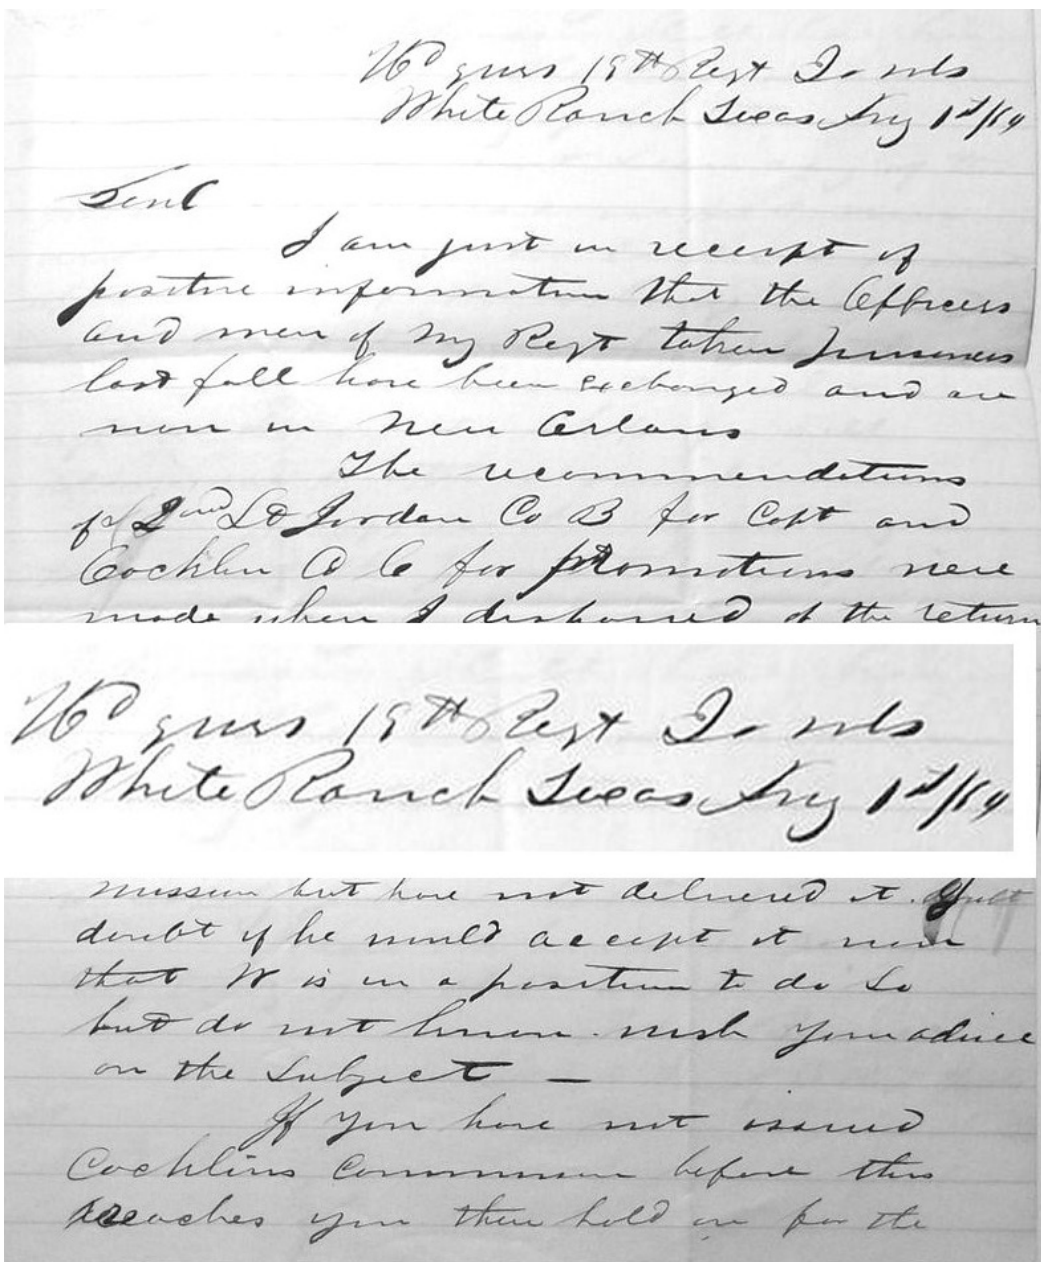 Hd qurs 19th Regt Ia vols
White Ranch Texas Aug 1st/64
Genl
I am just in receipt of
positive information that the Officers
and men of my Regt taken prisoners
last fall have been exchanged and are
now in New Orleans
The recommendations
of 2nd Lt Jordan Co B for Capt and
Cochlin Co C for promotions were
made when I despaired of the return
Hd qurs 19th Regt Ia vols
White Ranch Texas Aug 1st/64
mission but have not delivered it.
doubt if he would accept it now
that W is in a position to do So
but do not know. wish your advice
on the Subject —
If you have not issued
Cochlins Commission before this
reaches you then hold on for the